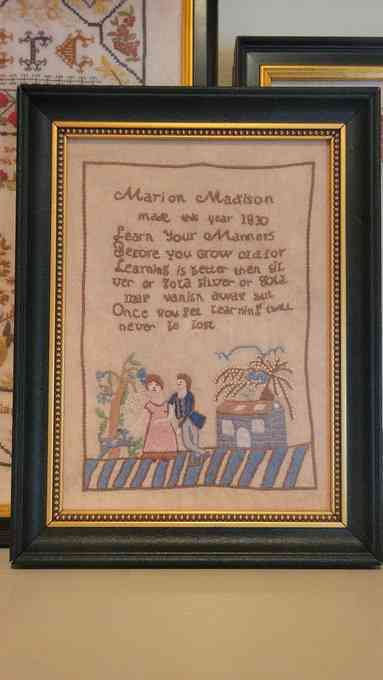 Marion Madison
made this year 1830
Learn Your Manners
Before you grow old for
Learning is better then sil
ver or Gold silver or Gold
may vanish away but
Once you get Learning twill
never be lost